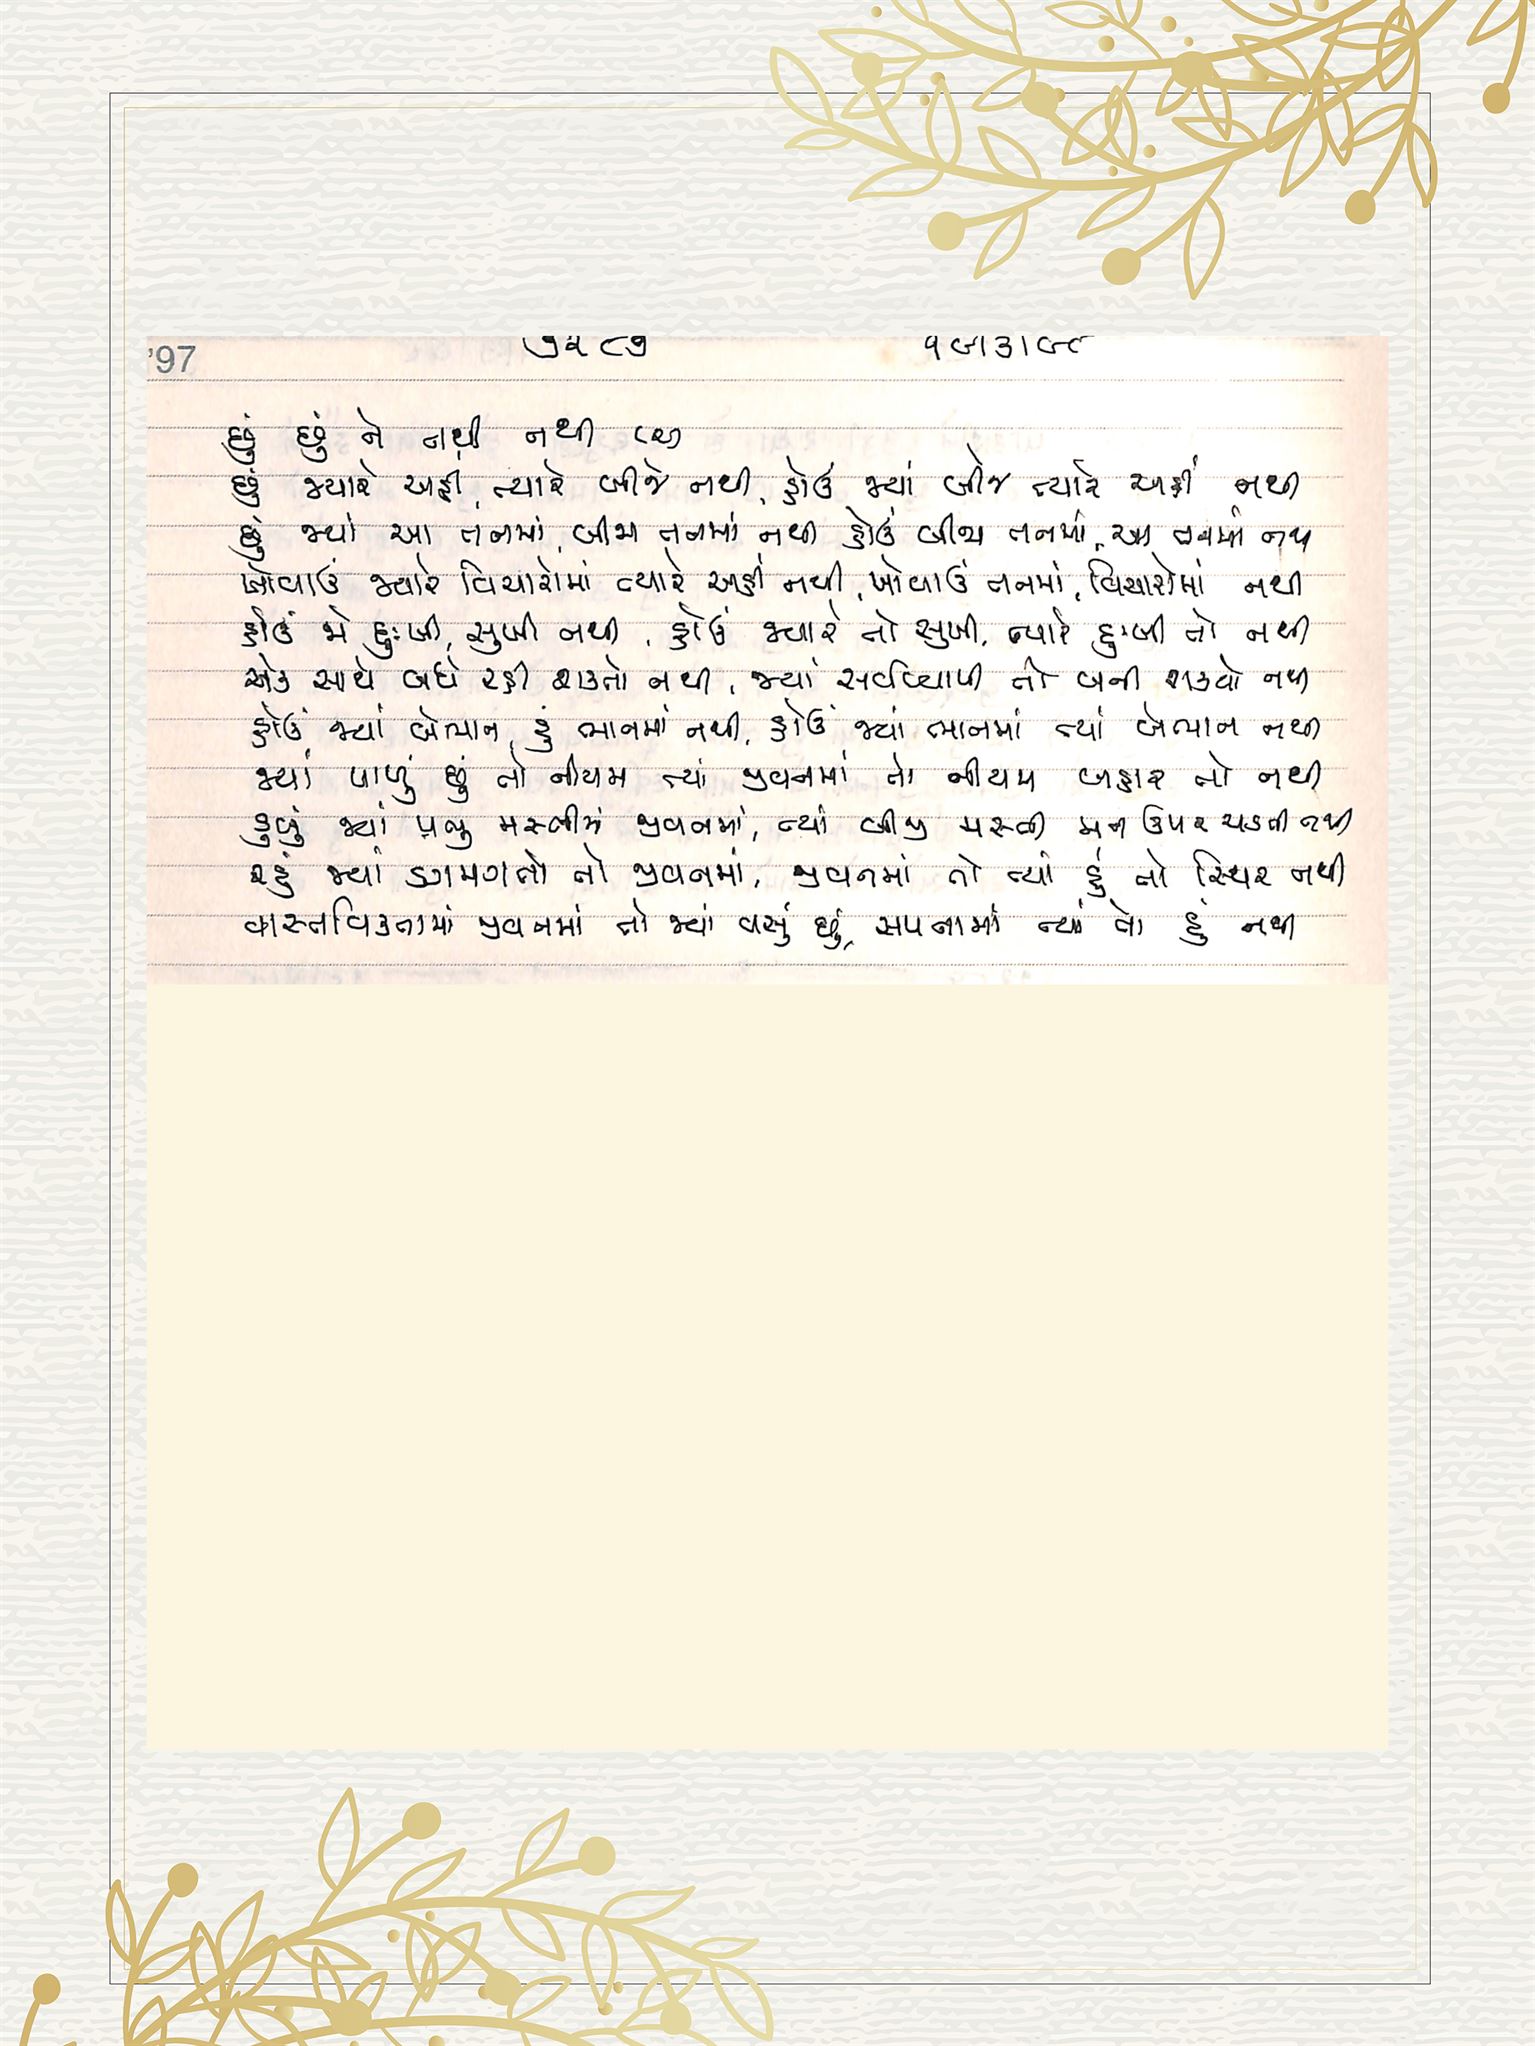 '97 ૭૨૮૭ ૧૯।૩।૯૮
છું છું ને નથી નથી (૨)
છું જ્યારે અહીં, ત્યારે બીજે નથી, હોઉં જ્યાં બીજે ત્યારે અહીં નથી
છું જ્યાં આ તનમાં, બીજા તનમાં નથી હોઉં બીજા તનમાં, આ તનમાં નથી
ખોવાઉં જ્યારે વિચારોમાં ત્યારે અહીં નથી, ખોવાઉં તનમાં, વિચારોમાં નથી
હોઉં જો દુઃખી, સુખી નથી, હોઉં જ્યારે તો સુખી, ત્યારે દુઃખી તો નથી
એક સાથે બધે રહી શકતો નથી, જ્યાં સર્વવ્યાપી તો બની શકવો નથી
હોઉં જ્યાં બેભાન, હું ભાનમાં નથી, હોઉં જ્યાં ભાનમાં ત્યાં બેભાન નથી
જ્યાં પાળું છું તો નીયમ ત્યાં જીવનમાં તો નીયમ બહાર તો નથી
ડુબું જ્યાં પ્રભુ મસ્તીમાં જીવનમાં, ત્યાં બીજી મસ્તી મન ઉપર ચડતી નથી
રહું જ્યાં ડગમગતો તો જીવનમાં, જીવનમાં તો ત્યાં હું તો સ્થિર નથી
વાસ્તવિકતામાં જીવનમાં તો જ્યાં વસું છું, સપનામાં ત્યાં તો હું નથી